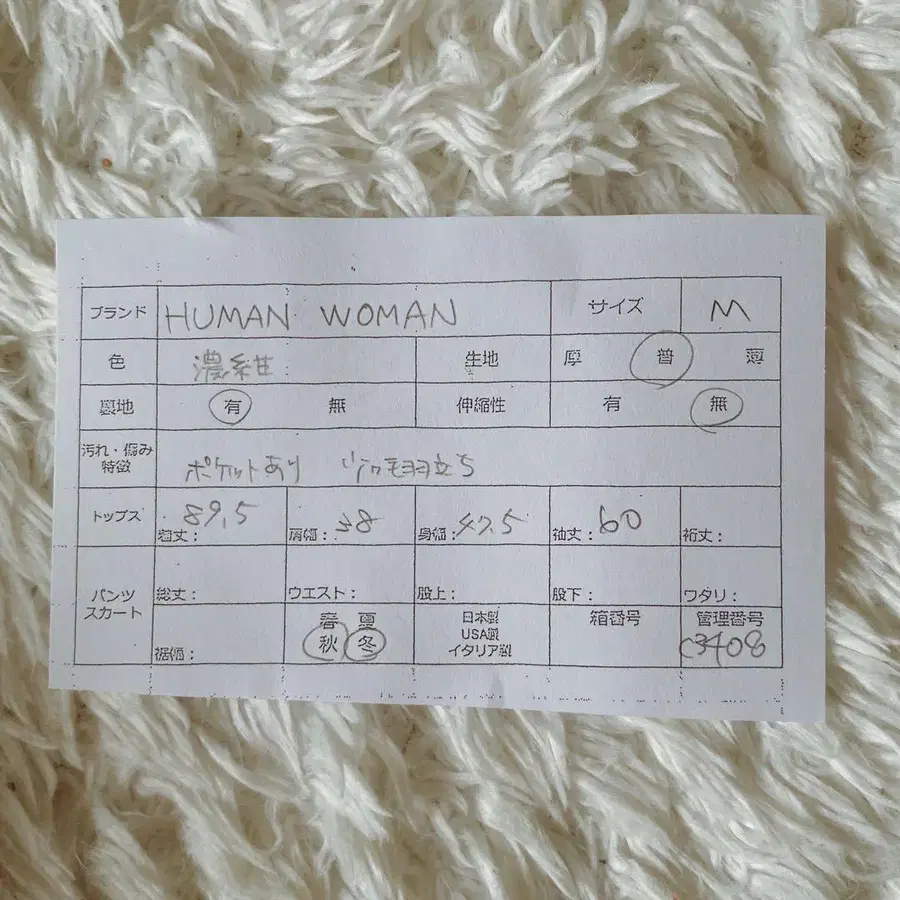 ブランド HUMAN WOMAN サイズ M
色 濃紺 生地 厚 普 薄
裏地 有 無 伸縮性 有 無
汚れ・傷み
特徴 ポケットあり 毛羽立ち
トップス 着丈: 89.5 肩幅: 38 身幅: 47.5 袖丈: 60 裄丈:
パンツ
スカート 総丈: ウエスト: 股上: 股下: ワタリ:
裾幅: 春 夏 秋 冬 日本製 USA製 イタリア製 箱番号 管理番号
C3408